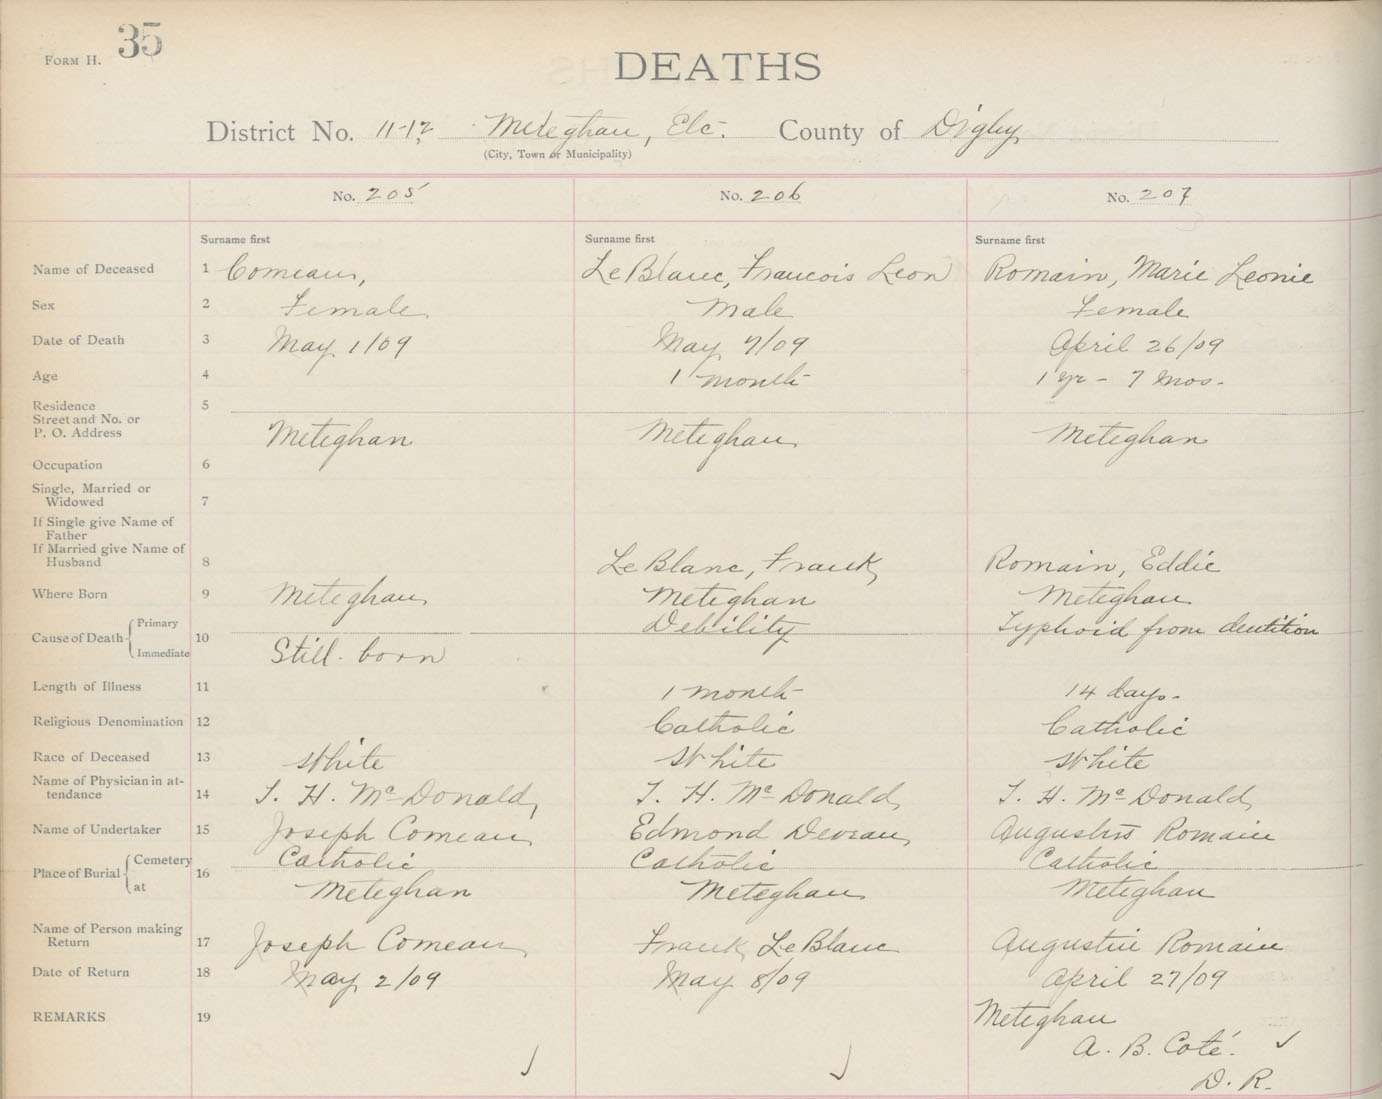 FORM H. 35
DEATHS
District No. 11-12 Meteghan, Etc. County of Digby
(City, Town or Municipality)
No. 205 No. 206 No. 207
Surname first Surname first Surname first
Name of Deceased 1 Comeau, LeBlanc, Francois Leon Romain, Marie Leonie
Sex 2 Female Male Female
Date of Death 3 May 1/09 May 7/09 April 26/09
Age 4 1 month 1 yr - 7 mos.
Residence 5
Street and No. or
P. O. Address Meteghan Meteghan Meteghan
Occupation 6
Single, Married or
Widowed 7
If Single give Name of
Father
If Married give Name of
Husband 8 LeBlanc, Frank Romain, Eddie
Where Born 9 Meteghan Meteghan Meteghan
Cause of Death Primary 10 Debility Typhoid from dentition
Immediate Still-born
Length of Illness 11 1 month 14 days-
Religious Denomination 12 Catholic Catholic
Race of Deceased 13 White White White
Name of Physician in at-
tendance 14 T. H. McDonald, T. H. McDonald T. H. McDonald
Name of Undertaker 15 Joseph Comeau Edmond Deveau Romain
Place of Burial Cemetery 16 Catholic Catholic Catholic
at Meteghan Meteghan Meteghan
Name of Person making
Return 17 Joseph Comeau Frank LeBlanc Augustin Romain
Date of Return 18 May 2/09 May 8/09 April 27/09
REMARKS 19 Meteghan
A. B. Coté.
D. R.